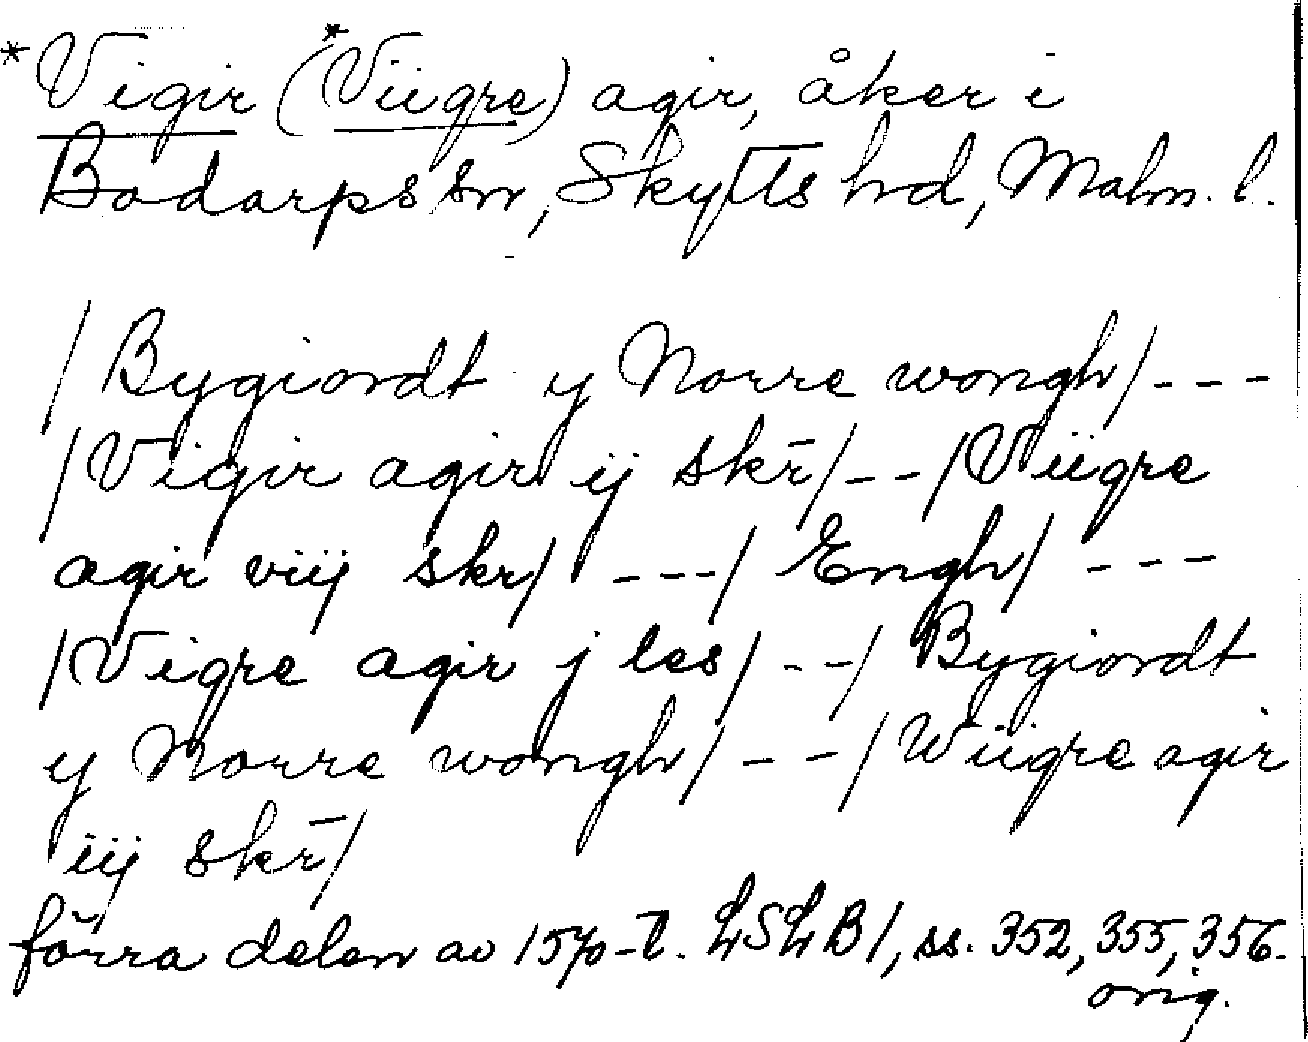 *Vigir (*Viigre) agir, åker i
Bodarps sn, Skytts hd, Malm. l.
/Bygiordt y Norre wongh/ - - -
/Vigir agir ij skr̄/ - - /Viigre
agir viij skr/ - - - / Engh/ - - -
/Vigre agir j les/ - - / Bygiordt
y Norre wongh/ - - / Wiigre agir
iij skr̄/
förra delen av 1570-t. LSLB 1, ss. 352, 355, 356.
orig.